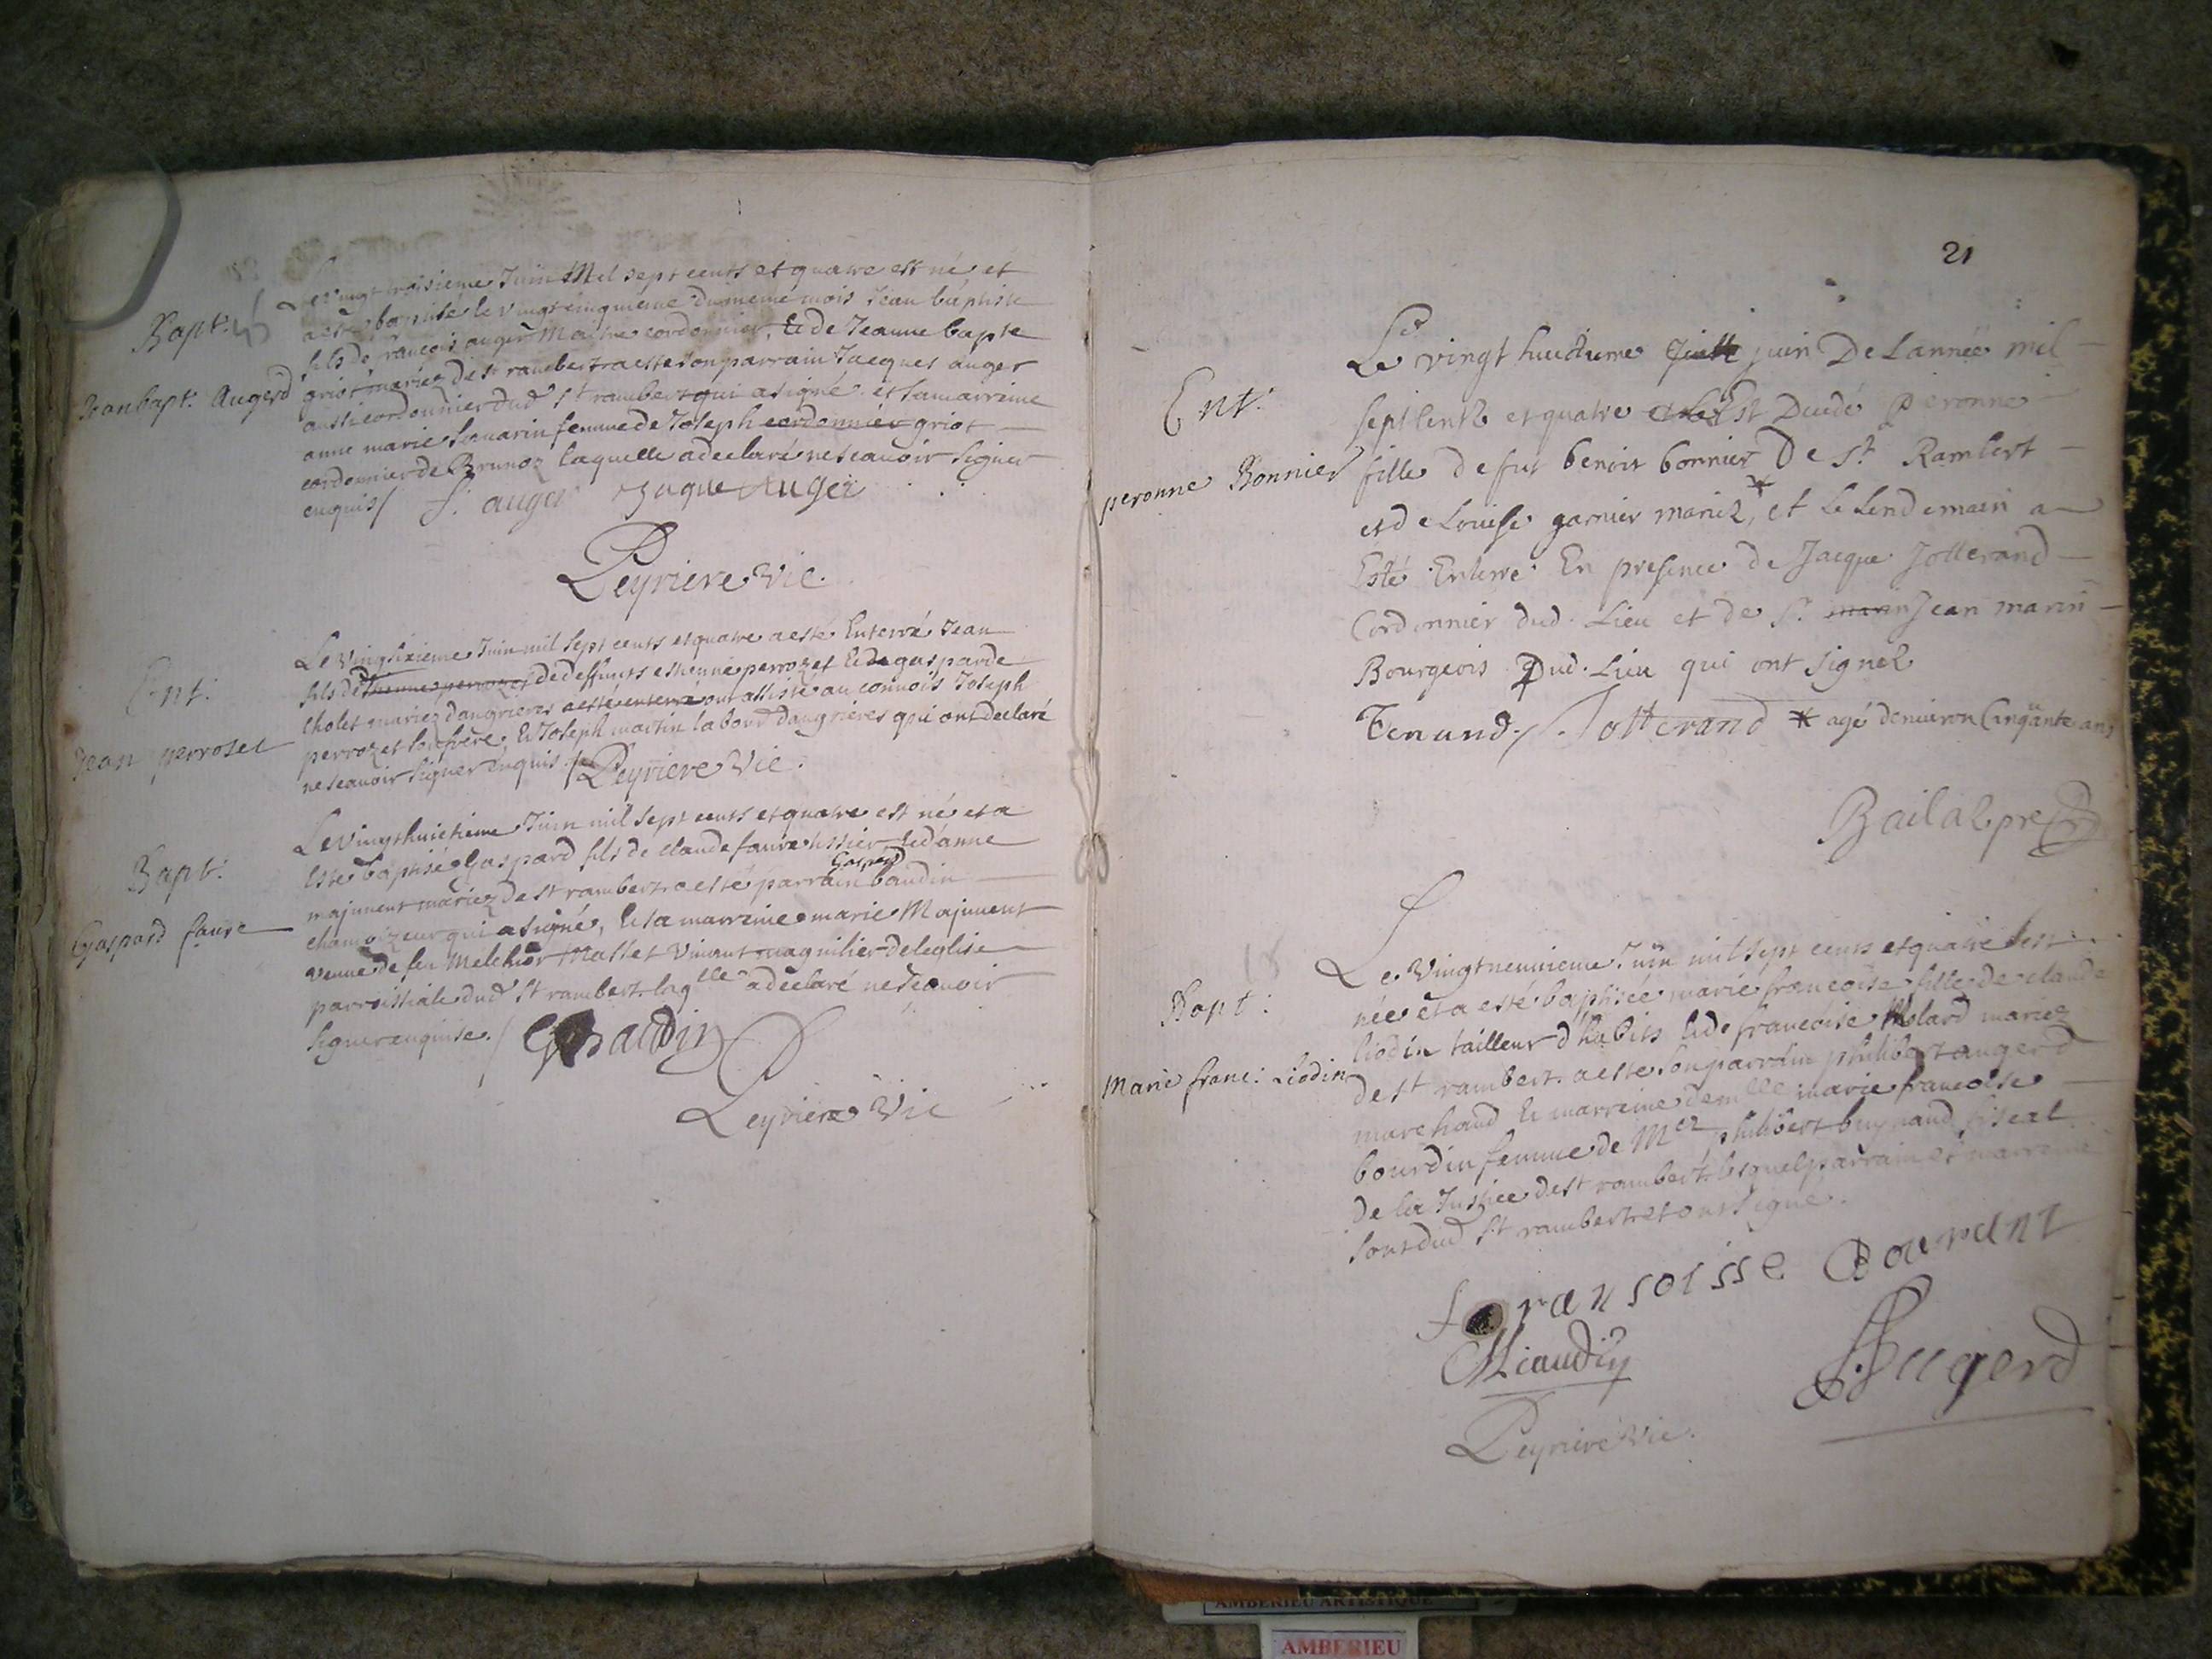 Bapt:
Jean bapt: Augerd
Le vingt troisieme Juin Mil sept cents et quatre est né et
a esté baptisé le vingt cinquieme du meme mois Jean baptiste
fils de francois auger Maitre cordonnier, et de Jeanne bapte
griot mariez de st rambert a esté son parrain Jacques auger
aussi cordonnier dud st rambert qui a signé et sa marreine
anne marie femme de Joseph cordonnier griot
cordonnier de laquelle a declaré ne scavoir signer
enquis / f. auger Jaque Auger
Peyriere vic.
Ent:
Jean perroset
Le vingt sixieme Juin mil sept cents et quatre a esté Enterré Jean
fils de de deffunts estienne perrozet et de gasparde
cholet mariez d'angrieres a esté enterré ont assisté au connois Joseph
perrozet son frere, et Joseph martin labour d'angrieres qui ont declaré
ne scavoir signer enquis./ Peyriere Vic.
Bapt:
Gaspard faure
Le vingt huictieme Juin mil sept cents et quatre est né et a
Esté baptisé Gaspard fils de claude faure tissier et d'anne
Gaspard
majunent mariez de st rambert a esté parrain baudin
chamoizeur qui a signé, et sa marreine marie Majunent
veuve de feu Melchior Masset vivant maguilier de leglise
parroissiale dud st rambert laqlle a declaré ne scavoir
signer enquise./ G Baudin
Peyriere Vic
21
Ent:
peronne Bonnier
Le vingt huictieme juin De Lannée mil
sept Cents et quatre Est Decedé Peronne
fille de fut benoit bonnier De st Rambert
et de Louise garnier mariez,* et le Lendemain a
Esté Enterré En presence de Jacque Jotterand
Cordonnier dud. Lieu et de Sr. marin Jean marin
Bourgeois Dud. Lieu qui ont signez
Tenand./ Jotterand * agé denviron Cinquante ans
Bailal pre
18
Bapt:
Marie franc: Liodin
Le Vingt neuvieme Juin mil sept cents et quatre est
née et a esté baptisée marie francoise fille de claude
liodin tailleur d'habits et de francoise Molard mariez
de st rambert. a esté son parrain philibert augerd
marchand et marreine demlle marie francoise
bourdin femme de Mer philibert buynand fiscal
de la Justice de st rambert lesquels parrain et marreine
sont dud st rambert et ont signé.
fransoisse Bourdnt
Liaudin
P Augerd
Peyriere Vic.
AMBERIEU ARTISTIQUE
AMBERIEU